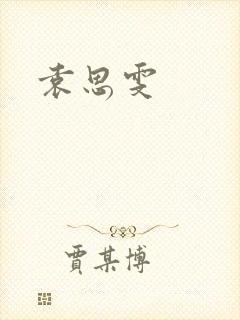 袁思雯
賈某博